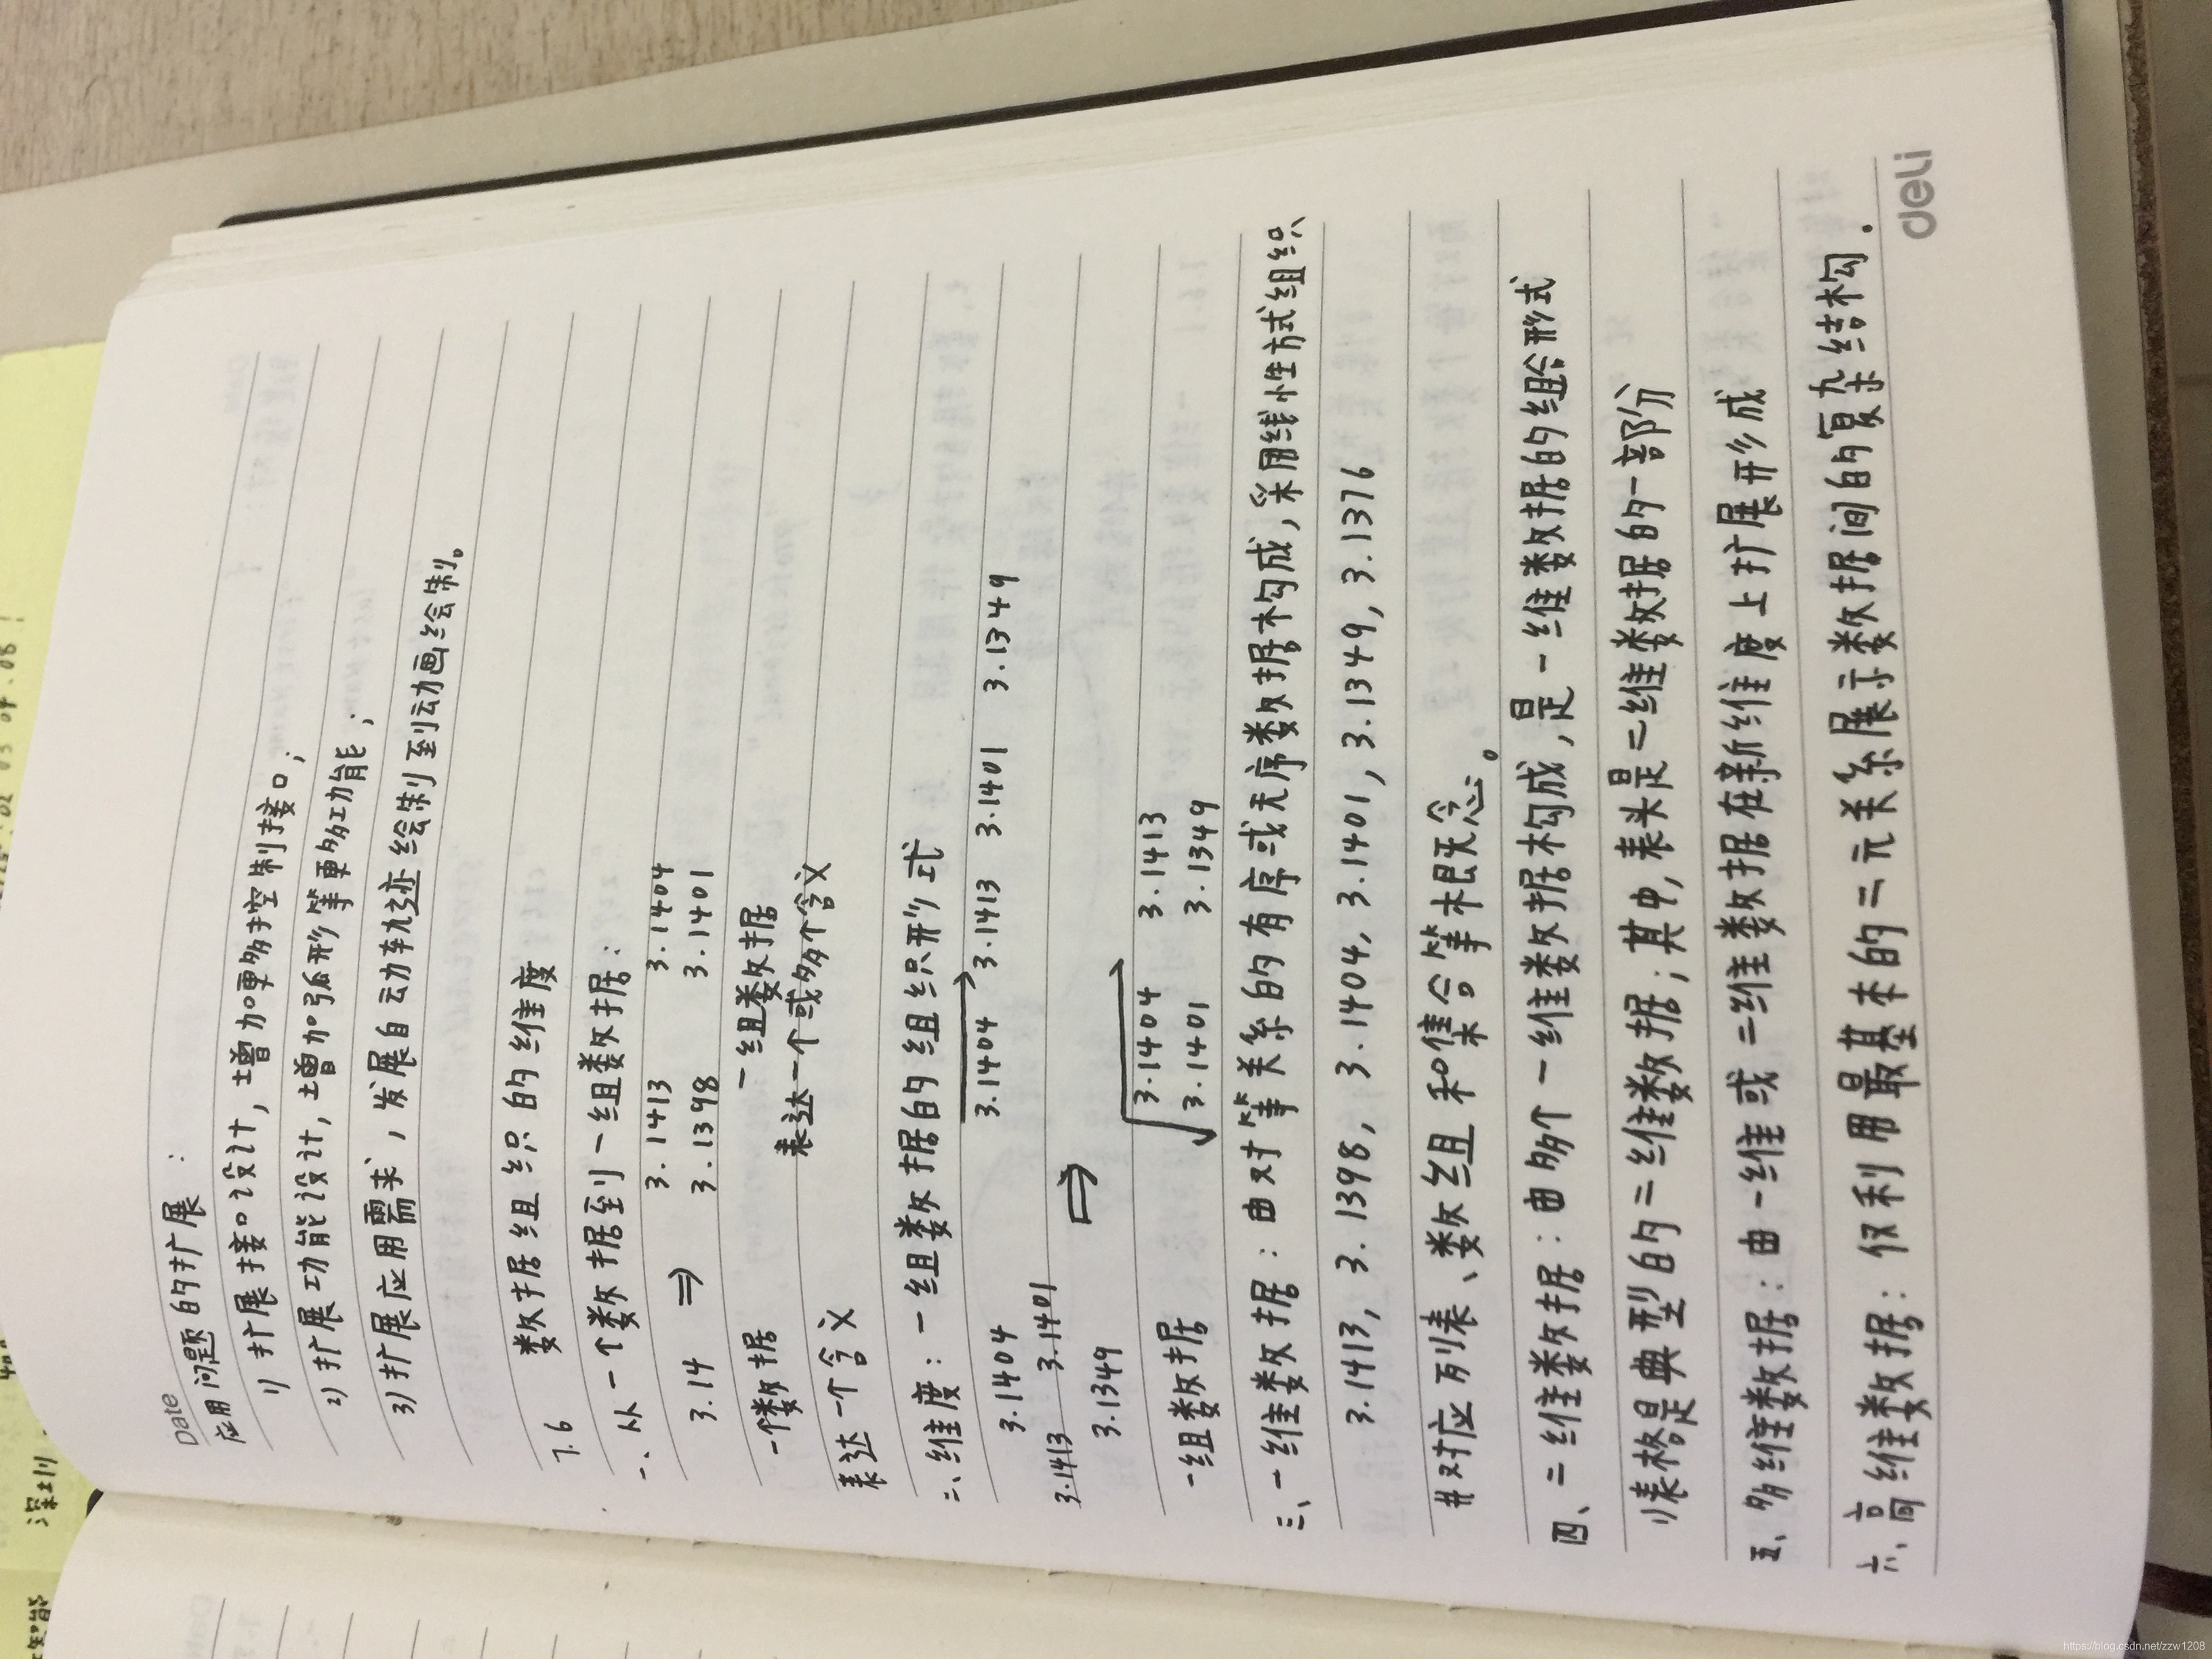 Date
应用问题的扩展：
1) 扩展接口设计，增加更多控制接口；
2) 扩展功能设计，增加弧形等更多功能；
3) 扩展应用需求，发展自动轨迹绘制到动画绘制。
7.6 数据组织的维度
一、从一个数据到一组数据：
3.1413 3.1404
3.14 ⇒ 3.1398 3.1401
一个数据 一组数据
表达一个含义 表达一个或多个含义
二、维度：一组数据的组织形式
3.1404 3.1404 3.1413 3.1401 3.1349
3.1413 3.1401
3.1349 ⇒ 3.1404 3.1413
一组数据 3.1401 3.1349
三、一维数据：由对等关系的有序或无序数据构成，采用线性方式组织
3.1413, 3.1398, 3.1404, 3.1401, 3.1349, 3.1376
#对应列表、数组和集合等概念。
四、二维数据：由多个一维数据构成，是一维数据的组合形式
表格是典型的二维数据；其中，表头是二维数据的一部分
五、多维数据：由一维或二维数据在新维度上扩展形成
六、高维数据：仅利用最基本的二元关系展示数据间的复杂结构.
deli
深圳
https://blog.csdn.net/zzw1208